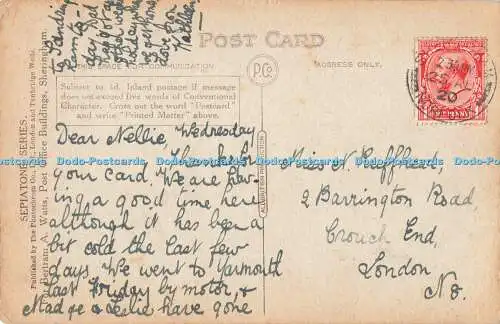 POST CARD
THIS SPACE FOR COMMUNICATION
ADDRESS ONLY.
P.Co
Subject to ½d. Inland postage if message
does not exceed five words of Conventional
Character. Cross out the word "Postcard"
and write "Printed Matter" above.
SEPIATONE SERIES.
Published by The Photochrom Co., Ltd., London and Tunbridge Wells.
for Bertram A. Watts, Post Office Buildings, Sheringham.
Dear Nellie, Wednesday
Thanks for
your card. We are hav-
ing a good time here
although it has been a
bit cold the last few
days. We went to Yarmouth
last Friday by motor, &
Madge & Leslie have gone
to Sandring-
ham to-
day. Dad
has got
holiday
love from
Kathleen
Miss N. Cufflead,
2 Barrington Road
Crouch End,
London
N8.
20
Dodo-Postcards Dodo-Postcards Dodo-Postcards Dodo-Postcards